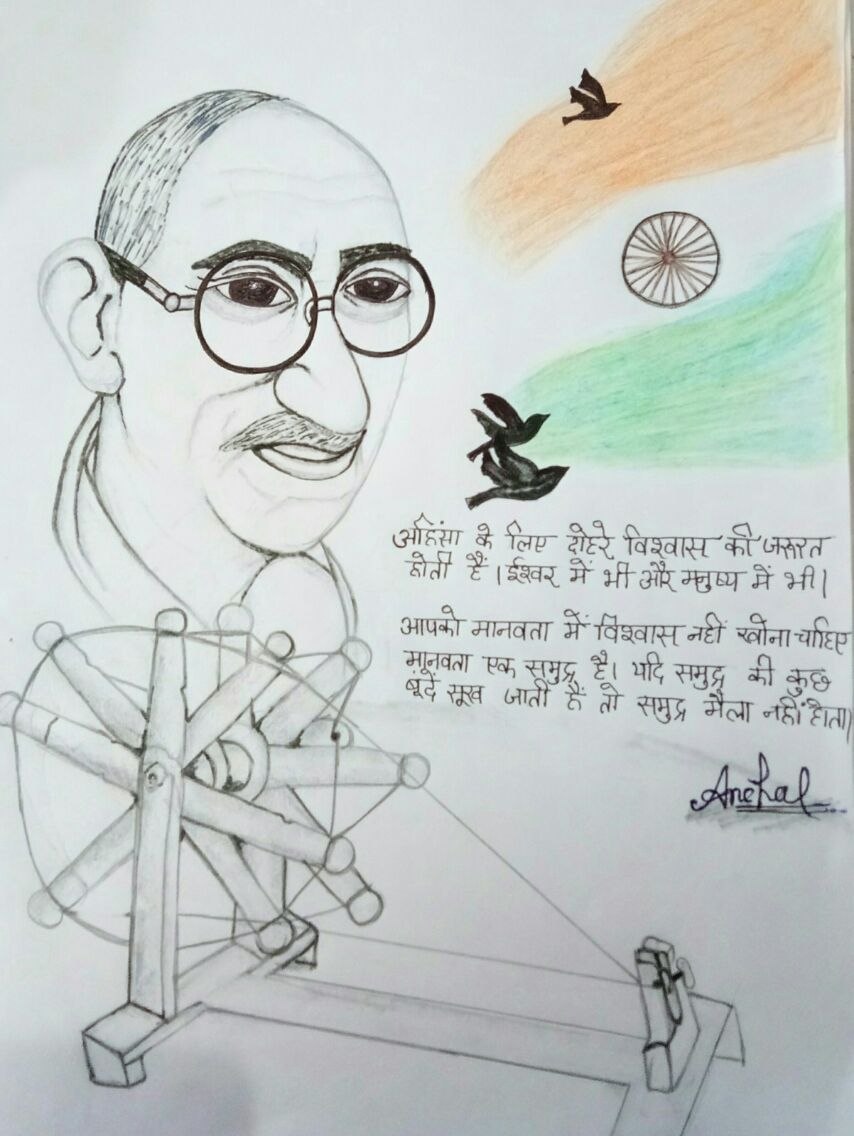 अहिंसा के लिए दोहरे विश्वास की जरूरत
होती है । ईश्वर में भी और मनुष्य में भी ।
आपको मानवता में विश्वास नहीं खोना चाहिए
मानवता एक समुद्र है। यदि समुद्र की कुछ
बूंदें सूख जाती हैं तो समुद्र मैला नहीं होता।
Anchal